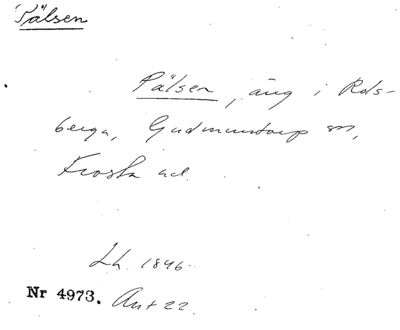 Pälsen
Pälsen, äng i Rols-
berga, Gudmuntorp sn,
Frosta hd.
Lh. 1846.
Nr 4973. Ant 22